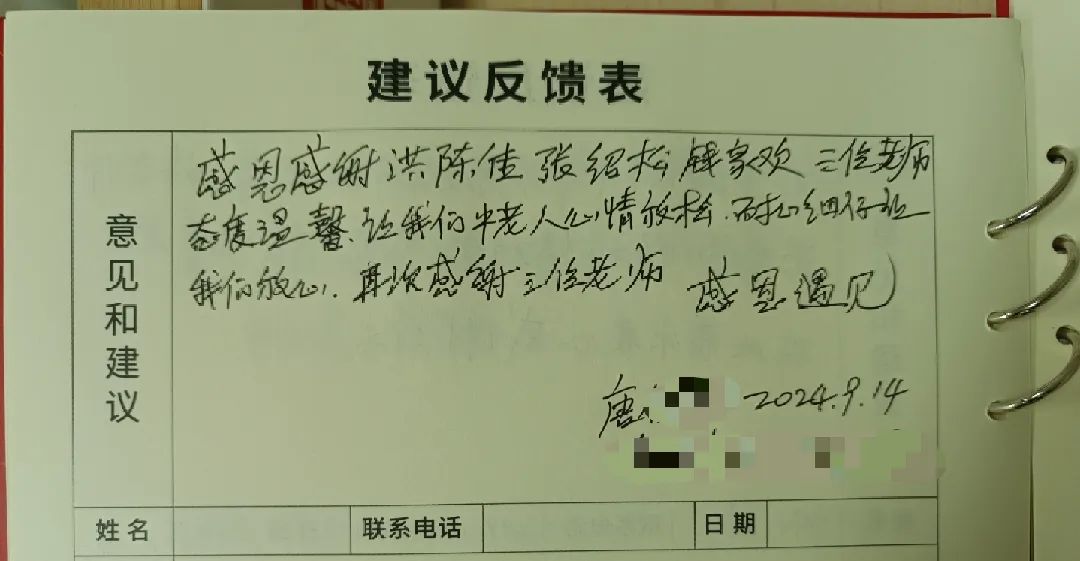 建议反馈表
意见和建议
感恩感谢洪陈佳张绍松钱家欢三位老师
态度温馨、让我们中老人心情放松、耐心细仔让
我们放心、再次感谢三位老师 感恩遇见
唐 2024.9.14
姓名 联系电话 日期